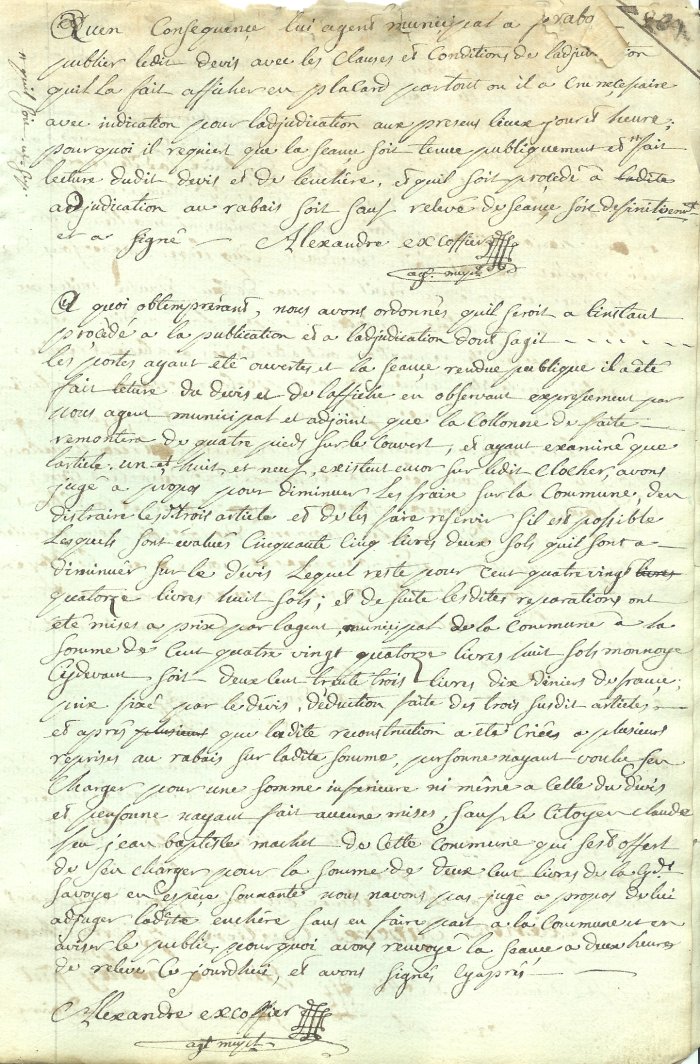 Quen Consequence lui agent municipal a
publier ledit devis avec les Clauses et Conditions de
quil la fait afficher en placard partout ou il a cru necessaire
avec indication pour ladjudication aux presens lieux jour et heure,
pourquoi il requiert que la seance soit tenue publiquement et fait
lecture dudit devis et de lenchère, et quil soit procédé à ladite
adjudication au rabais soit sauf relevé de seance, soit definitivement
et a signé — Alexandre excoffier
agt mupl
A quoi obtemprérant, nous avons ordonnés quil seroit a linstant
procédé a la publication et a ladjudication dont sagit - - - - -
les portes ayant été ouvertes et la seance rendue publique il a été
fait lecture du devis et de laffiche en observant expressement par
nous agent municipal et adjoint que la Collonne de faite —
remontera de quatre pieds sur le couvert, et ayant examiné que
larticle, un et huit, et neuf, existent encor sur ledit Clocher, avons
jugé a propos pour diminuer les fraix sur la Commune, den
distraire lesdts trois article et de les faire reservir sil est possible
Lesquels sont évalués Cinquante Cinq livres deux sols quil sont a —
diminuér sur le devis Lequel reste pour Cent quatre vingt livres
quatorze livres huit sols; et de suite lesdites reparations ont
été mises a prix par lagent municipal de la Commune a la
somme de Cent quatre vingt quatorze livres huit sols monnoye
Cydevant soit deux Cent trente trois livres dix deniers de france,
prix fixé par le devis, déduction faite des trois susdit articles, —
et après plusieurs que ladite reconstruction a été Criées a plusieurs
reprises au rabais sur ladite somme, personne nayant voulu sen
Charger pour une somme inferieure ni même a Celle du devis
et personne nayant fait aucune mises, sauf le Citoyen Claude
feu jean baptiste machet de Cette Commune qui sest offert
de sen charger pour la somme de deux Cent livres de la Cydt
Savoye en espèce sonnante nous navons pas jugé a propos de lui
adjuger ladite enchère sans en faire part a la Commune et en
aviser le public, pourquoi avons renvoyé la seance a deux heures
de relevé Ce jourdhui, et avons signés Cyaprès —
Alexandre excoffier
agt mupl